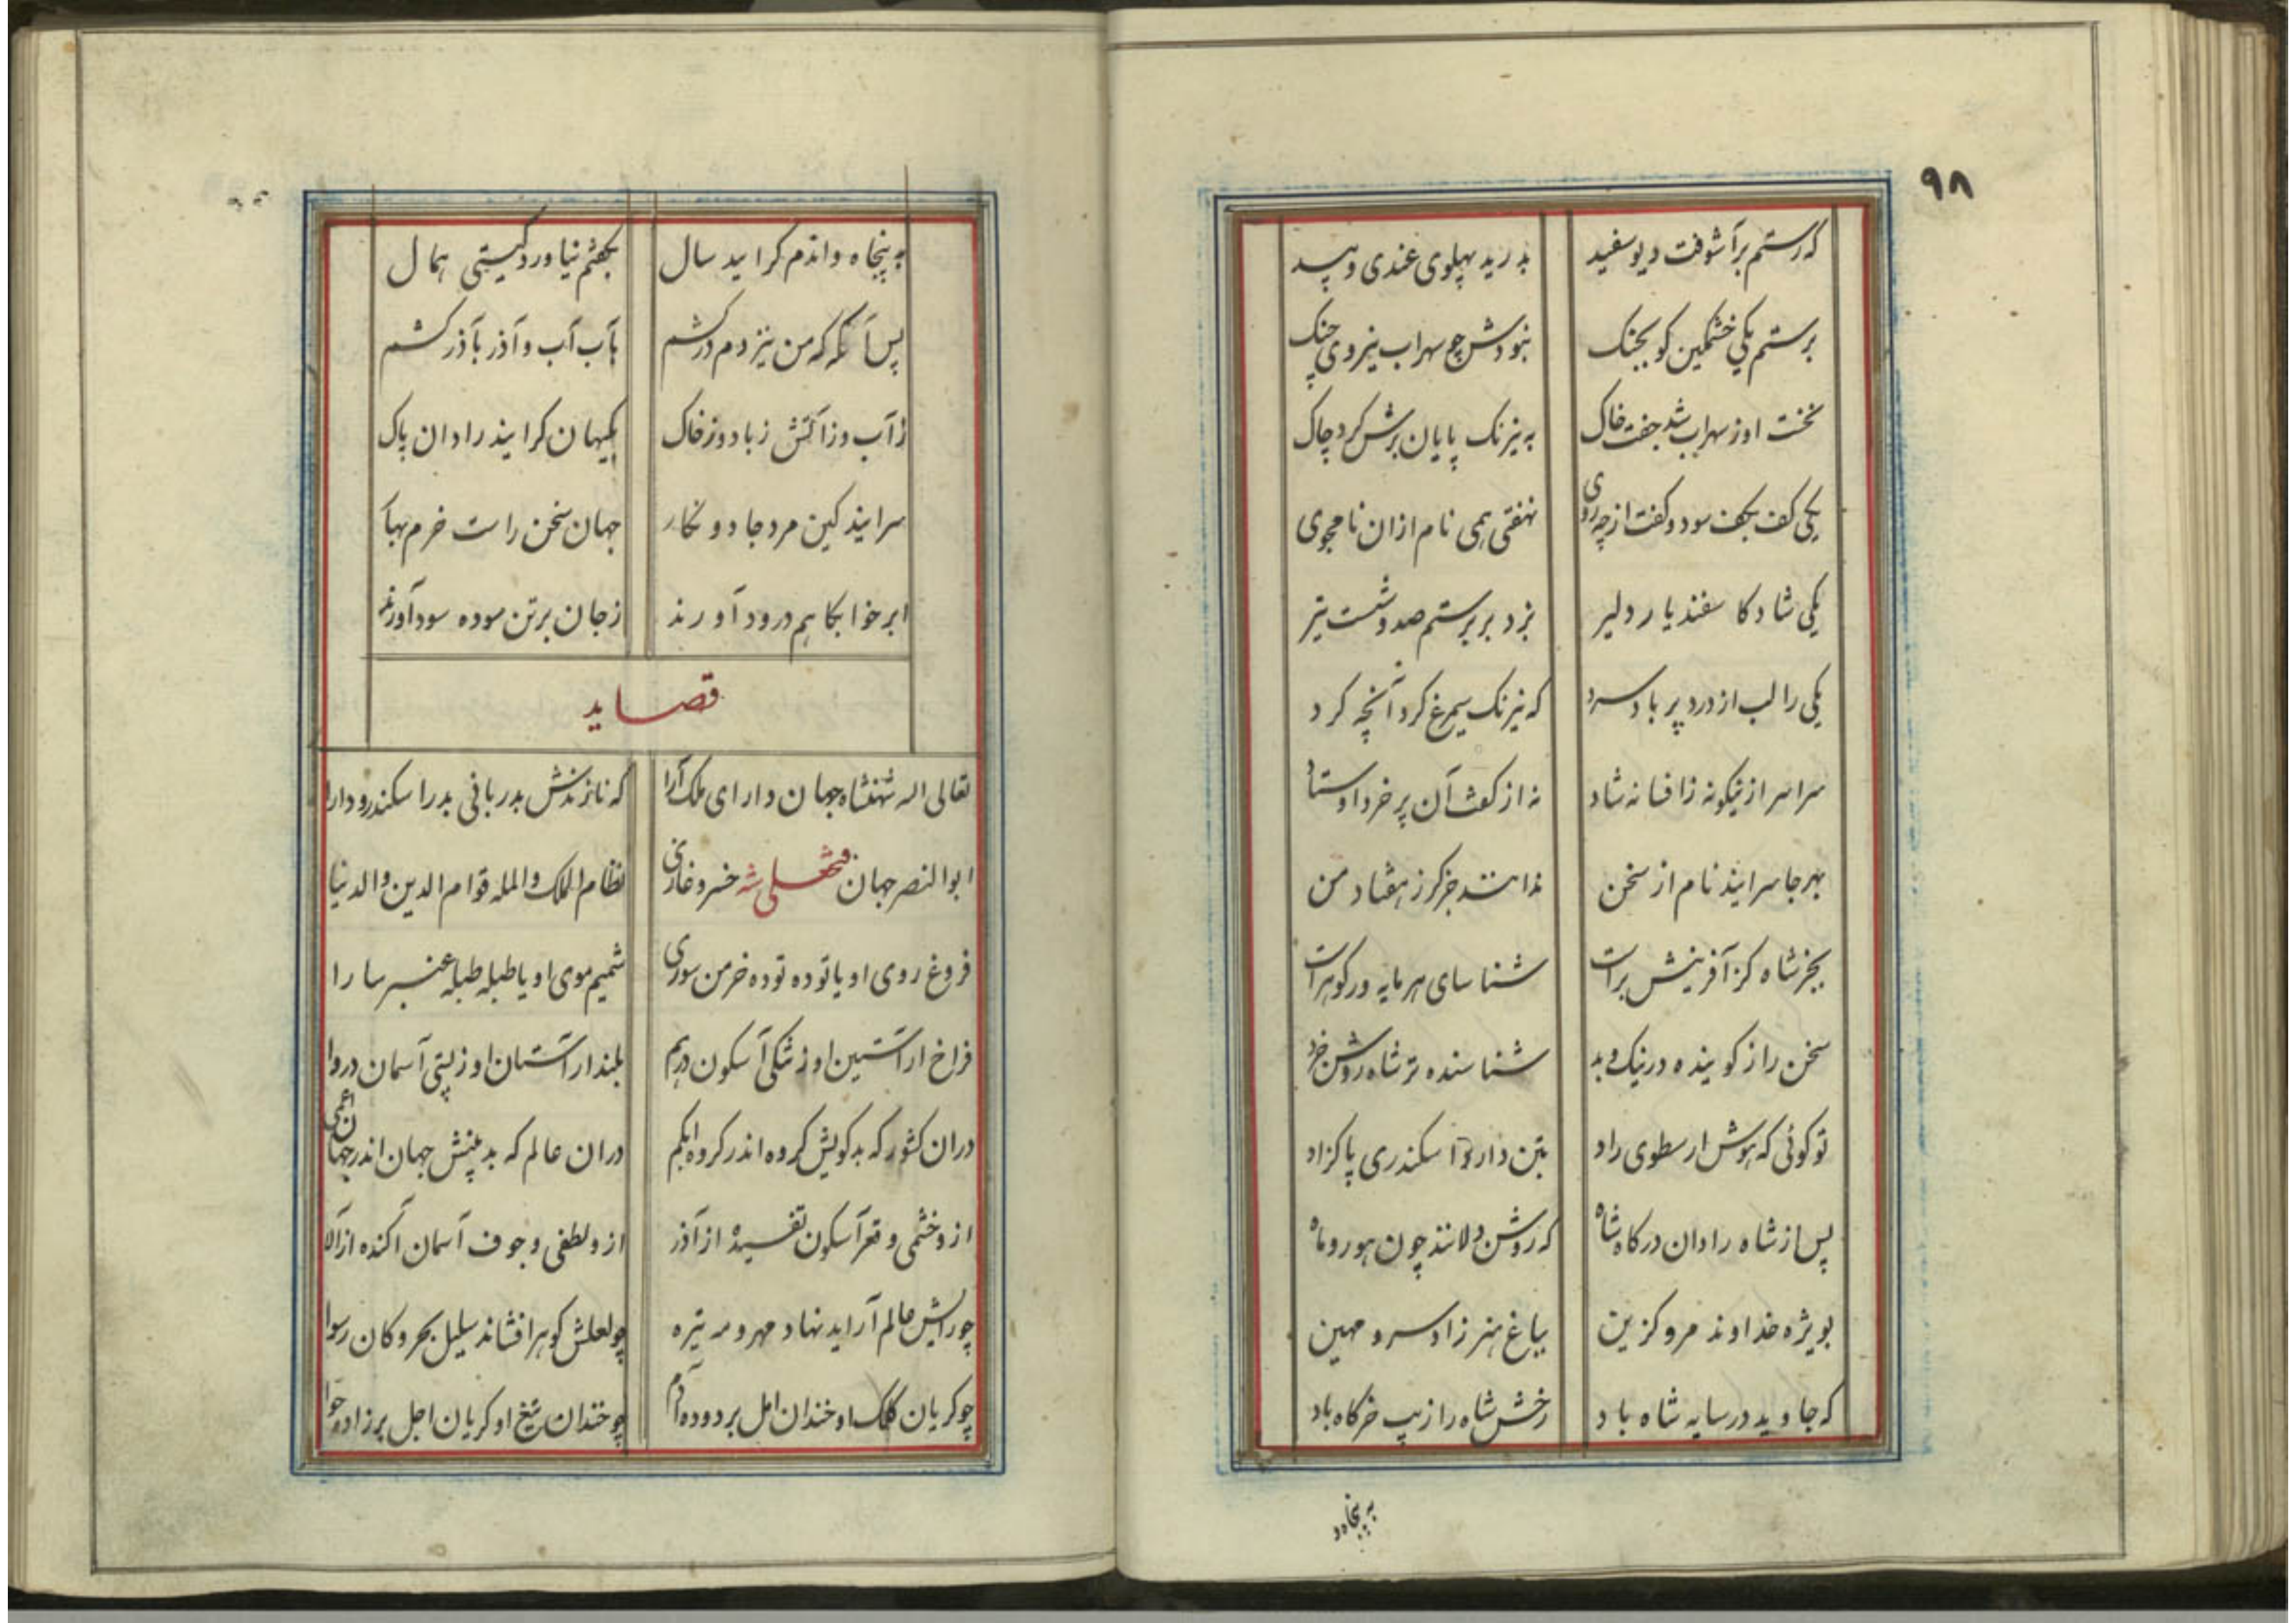 ۹۸
که رستم برآشوفت دیو سفید بدرید پهلوی غندی و بید
برستم یکی خشمگین کو بجنک نبودش چو سهراب نیروی چنک
نخست او ز سهراب شد جفت خاک به نیرنک پایان برش کرد چاک
یکی کف بکف سود و کفت از چه روی نهفتی همی نام از ان نامجوی
یکی شاد کا سفندیار دلیر بزد بر برستم صد و شست تیر
یکی را لب از درد پر باد سرد که نیرنک سیمرغ کرد آنچه کرد
سراسر ازینکونه ز افسانه شاد نه از کفت آن پر خرد اوستاد
بهر جا سرایند نام از سخن ندانند جز کرز هفتاد من
بجز شاه کز آفرینش براست شناسای هر مایه ور کوهر است
سخن را ز کوینده در نیک و بد شناسنده تر شاه روشن خرد
تو کوئی که هوش ارسطوی راد بتن دارد آ سکندری پاکزاد
پس از شاه رادان درکاه شاه که روشن دلانند چون هور و ماه
بویژه خداوند مرو کزین بباغ هنر زاد سرو مهین
که جاوید در سایه شاه باد رخش شاه را زیب خرکاه باد
به پنجاه و
به پنجاه واندم کراید سال بچشم نیاورد کیتی همال
پس آنکه که من نیز دم درکشم بآب آب و آذر بآذر کشم
ز آب و ز آتش ز باد و ز خاک بکیهان کرایند رادان پاک
سرایند کین مرد جادو نکار جهان سخن راست خرم بهار
ابر خوابکاهم درود آورند ز جان بر تن سوده سود آورند
قصاید
تعالی اله شهنشاه جهان دارای ملک آرا که نازندش بدربانی بدر اسکندر و دارا
ابوالنصر جهان فتحعلی شه خسرو غازی نظام الملک والمله قوام الدین والدنیا
فروغ روی او یا توده توده خرمن سوری شمیم موی او یا طبله طبله عنبر سارا
فراخ ار آستین او ز تنکی آبسکون درهم بلند ار آستان او ز پستی آسمان دروا
دران کشور که بدکویش کروه اندر کروه ابکم دران عالم که بدبینش جهان اندر جهان اعمی
ازو خشمی و قعر آبسکون تفسیده از آذر ازو لطفی و جوف آسمان آکنده از آلا
چو رایش عالم آراید نهاد مهر و مه تیره چو لعلش کوهر افشاند سلیل بحر و کان رسوا
چو کریان کلک او خندان امل بر دوده آدم چو خندان تیغ او کریان اجل بر زاده حوا